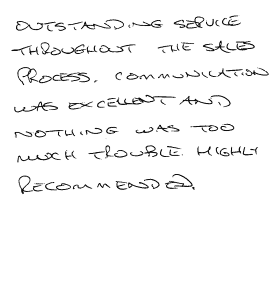 OUTSTANDING SERVICE
THROUGHOUT THE SALES
PROCESS. COMMUNICATION
WAS EXCELLENT AND
NOTHING WAS TOO
MUCH TROUBLE. HIGHLY
RECOMMENDED.